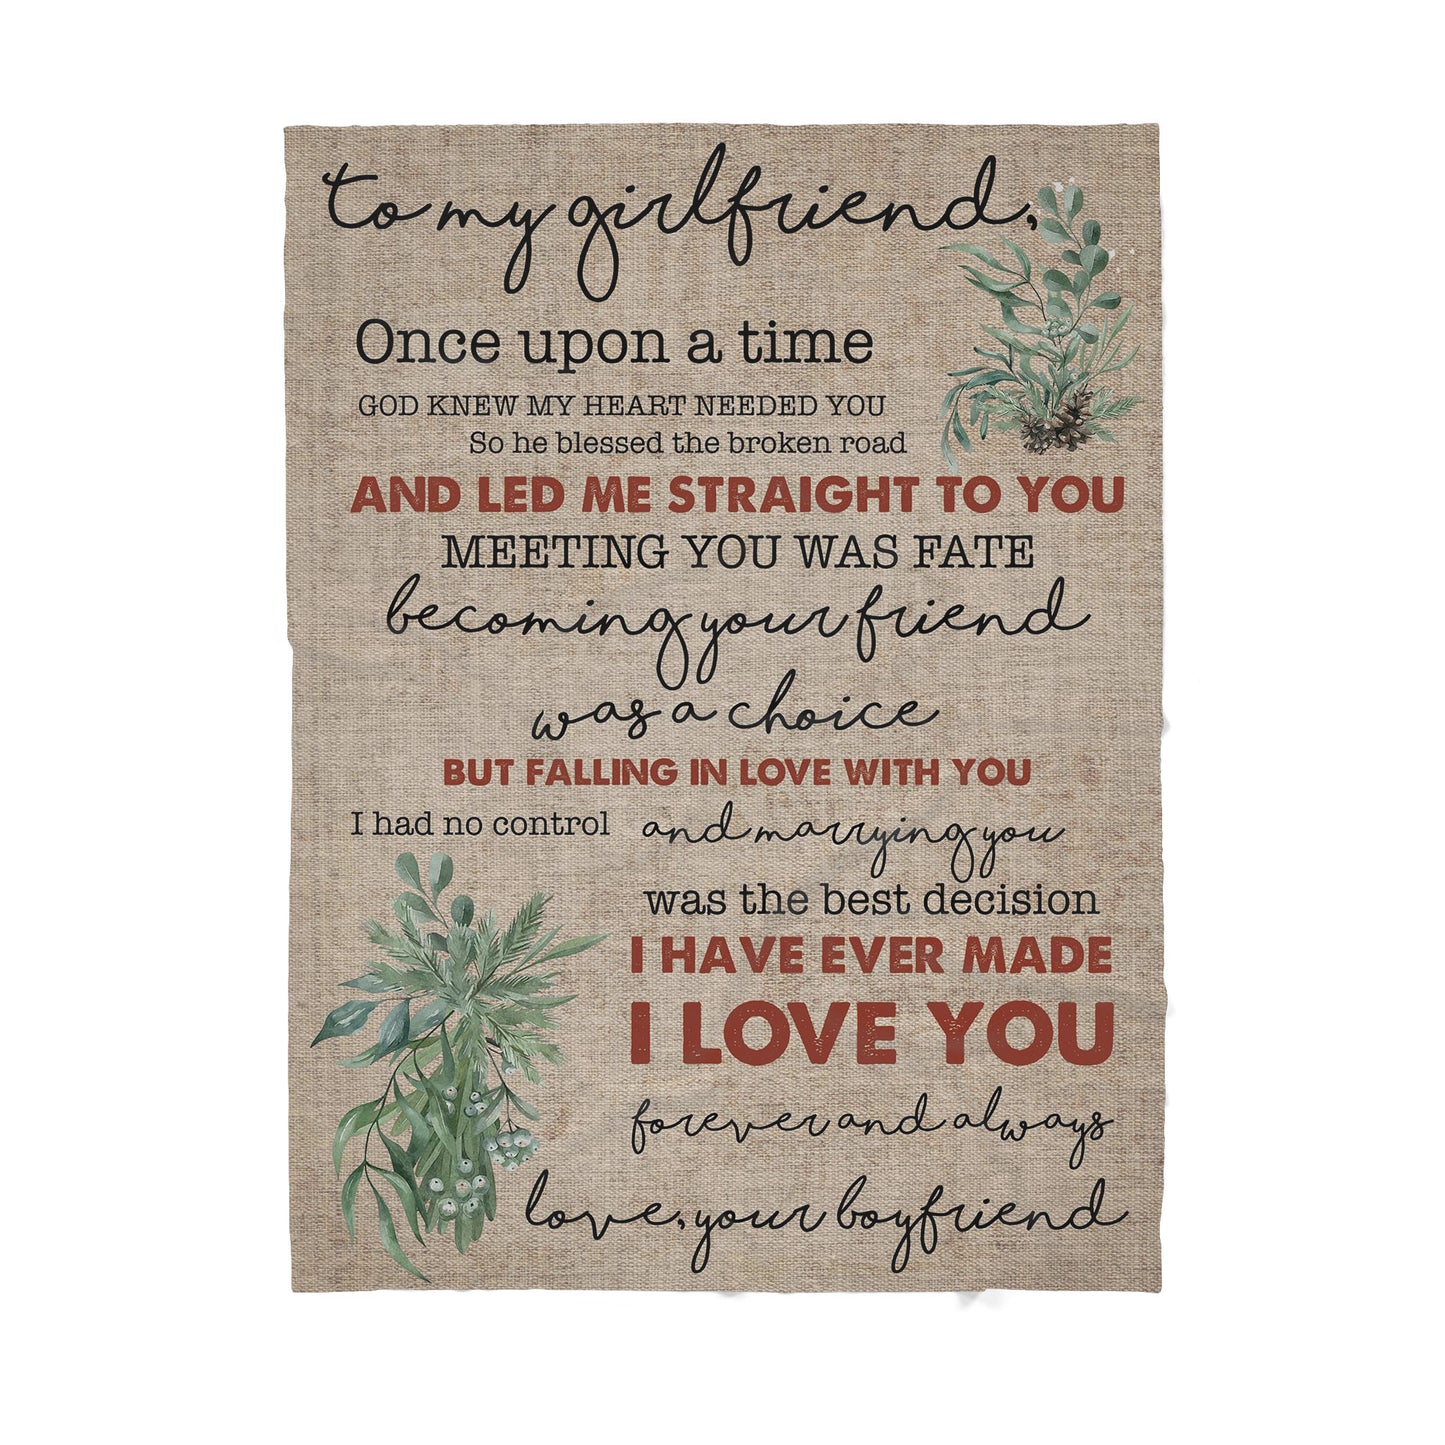 to my girlfriend,
Once upon a time
GOD KNEW MY HEART NEEDED YOU
So he blessed the broken road
AND LED ME STRAIGHT TO YOU
MEETING YOU WAS FATE
becoming your friend
was a choice
BUT FALLING IN LOVE WITH YOU
I had no control and marrying you
was the best decision
I HAVE EVER MADE
I LOVE YOU
forever and always
love, your boyfriend